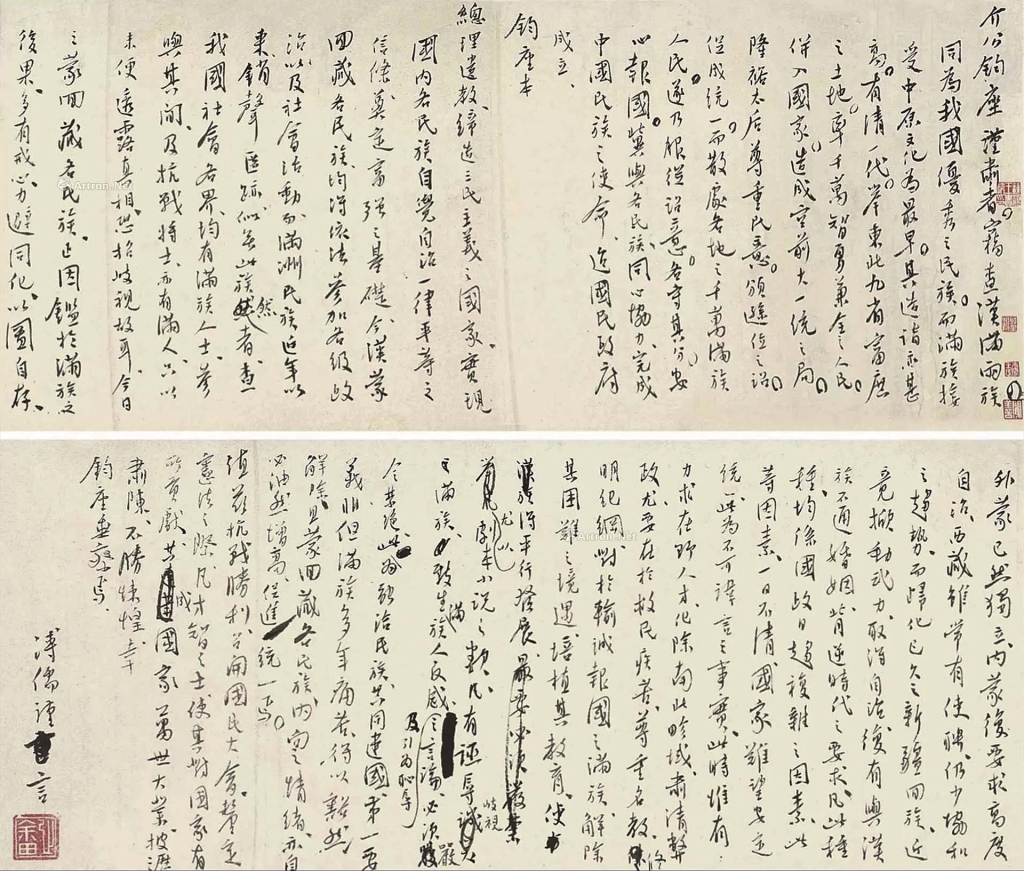 介公鈞座謹肅者竊查漢滿兩族
同為我國優秀之民族而滿族接
受中原文化為最早其造詣亦甚
高有清一代舉東北九省富庶
之土地率千萬智勇兼全之人民
併入國家造成空前大一統之局
隆裕太后尊重民意頒遜位之詔
促成統一而散處各地之千萬滿族
人民遂乃服從詔意各守其分忠
心報國冀與各民族同心協力完成
中國民族之使命迨國民政府
成立
鈞座本
總理遺教締造三民主義之國家實現
國內各民族自覺自治一律平等之
信條奠定富強之基礎今漢蒙
回藏各民族均得依法參加各級政
治以及社會活動而滿洲民族近年以
來銷聲匿跡似無此族然者查
我國社會各界均有滿族人士參
與其間及抗戰將士亦有滿人只以
未便透露真相恐招歧視故耳今日
之蒙回藏各民族正因鑑於滿族之
後果多有戒心力避同化以圖自存
外蒙已然獨立內蒙復要求高度
自治西藏雖常有使聘仍少協和
之趨勢而歸化已久之新疆回族近
竟掀動武力取消自治復有與漢
族不通婚姻背逆時代之要求凡此種
種均係國政日趨複雜之因素此
等因素一日不清國家難望安定
統一此為不可諱言之事實此時惟有
力求在野人才化除南北畛域肅清弊
政尤要在於救民疾苦尊重名教修
明紀綱對於輸誠報國之滿族解除
其困難之境遇培植其教育使
漢族得平行發展最要必須嚴禁
尤以劇本小說之類凡有誣辱歧視
之滿族致生滿族人反感之言論必須嚴
令禁絕此為融洽民族共同建國第一要
及引為恥辱
義非但滿族多年痛苦得以豁然
解除且蒙回藏各民族內向之情緒亦自
必油然增高促進統一焉
值茲抗戰勝利召開國民大會釐定
憲法之際凡才智之士使其對國家有
所貢獻共成國家萬世大業披瀝
肅陳不勝悚惶幸
鈞座垂察焉
溥儒謹言